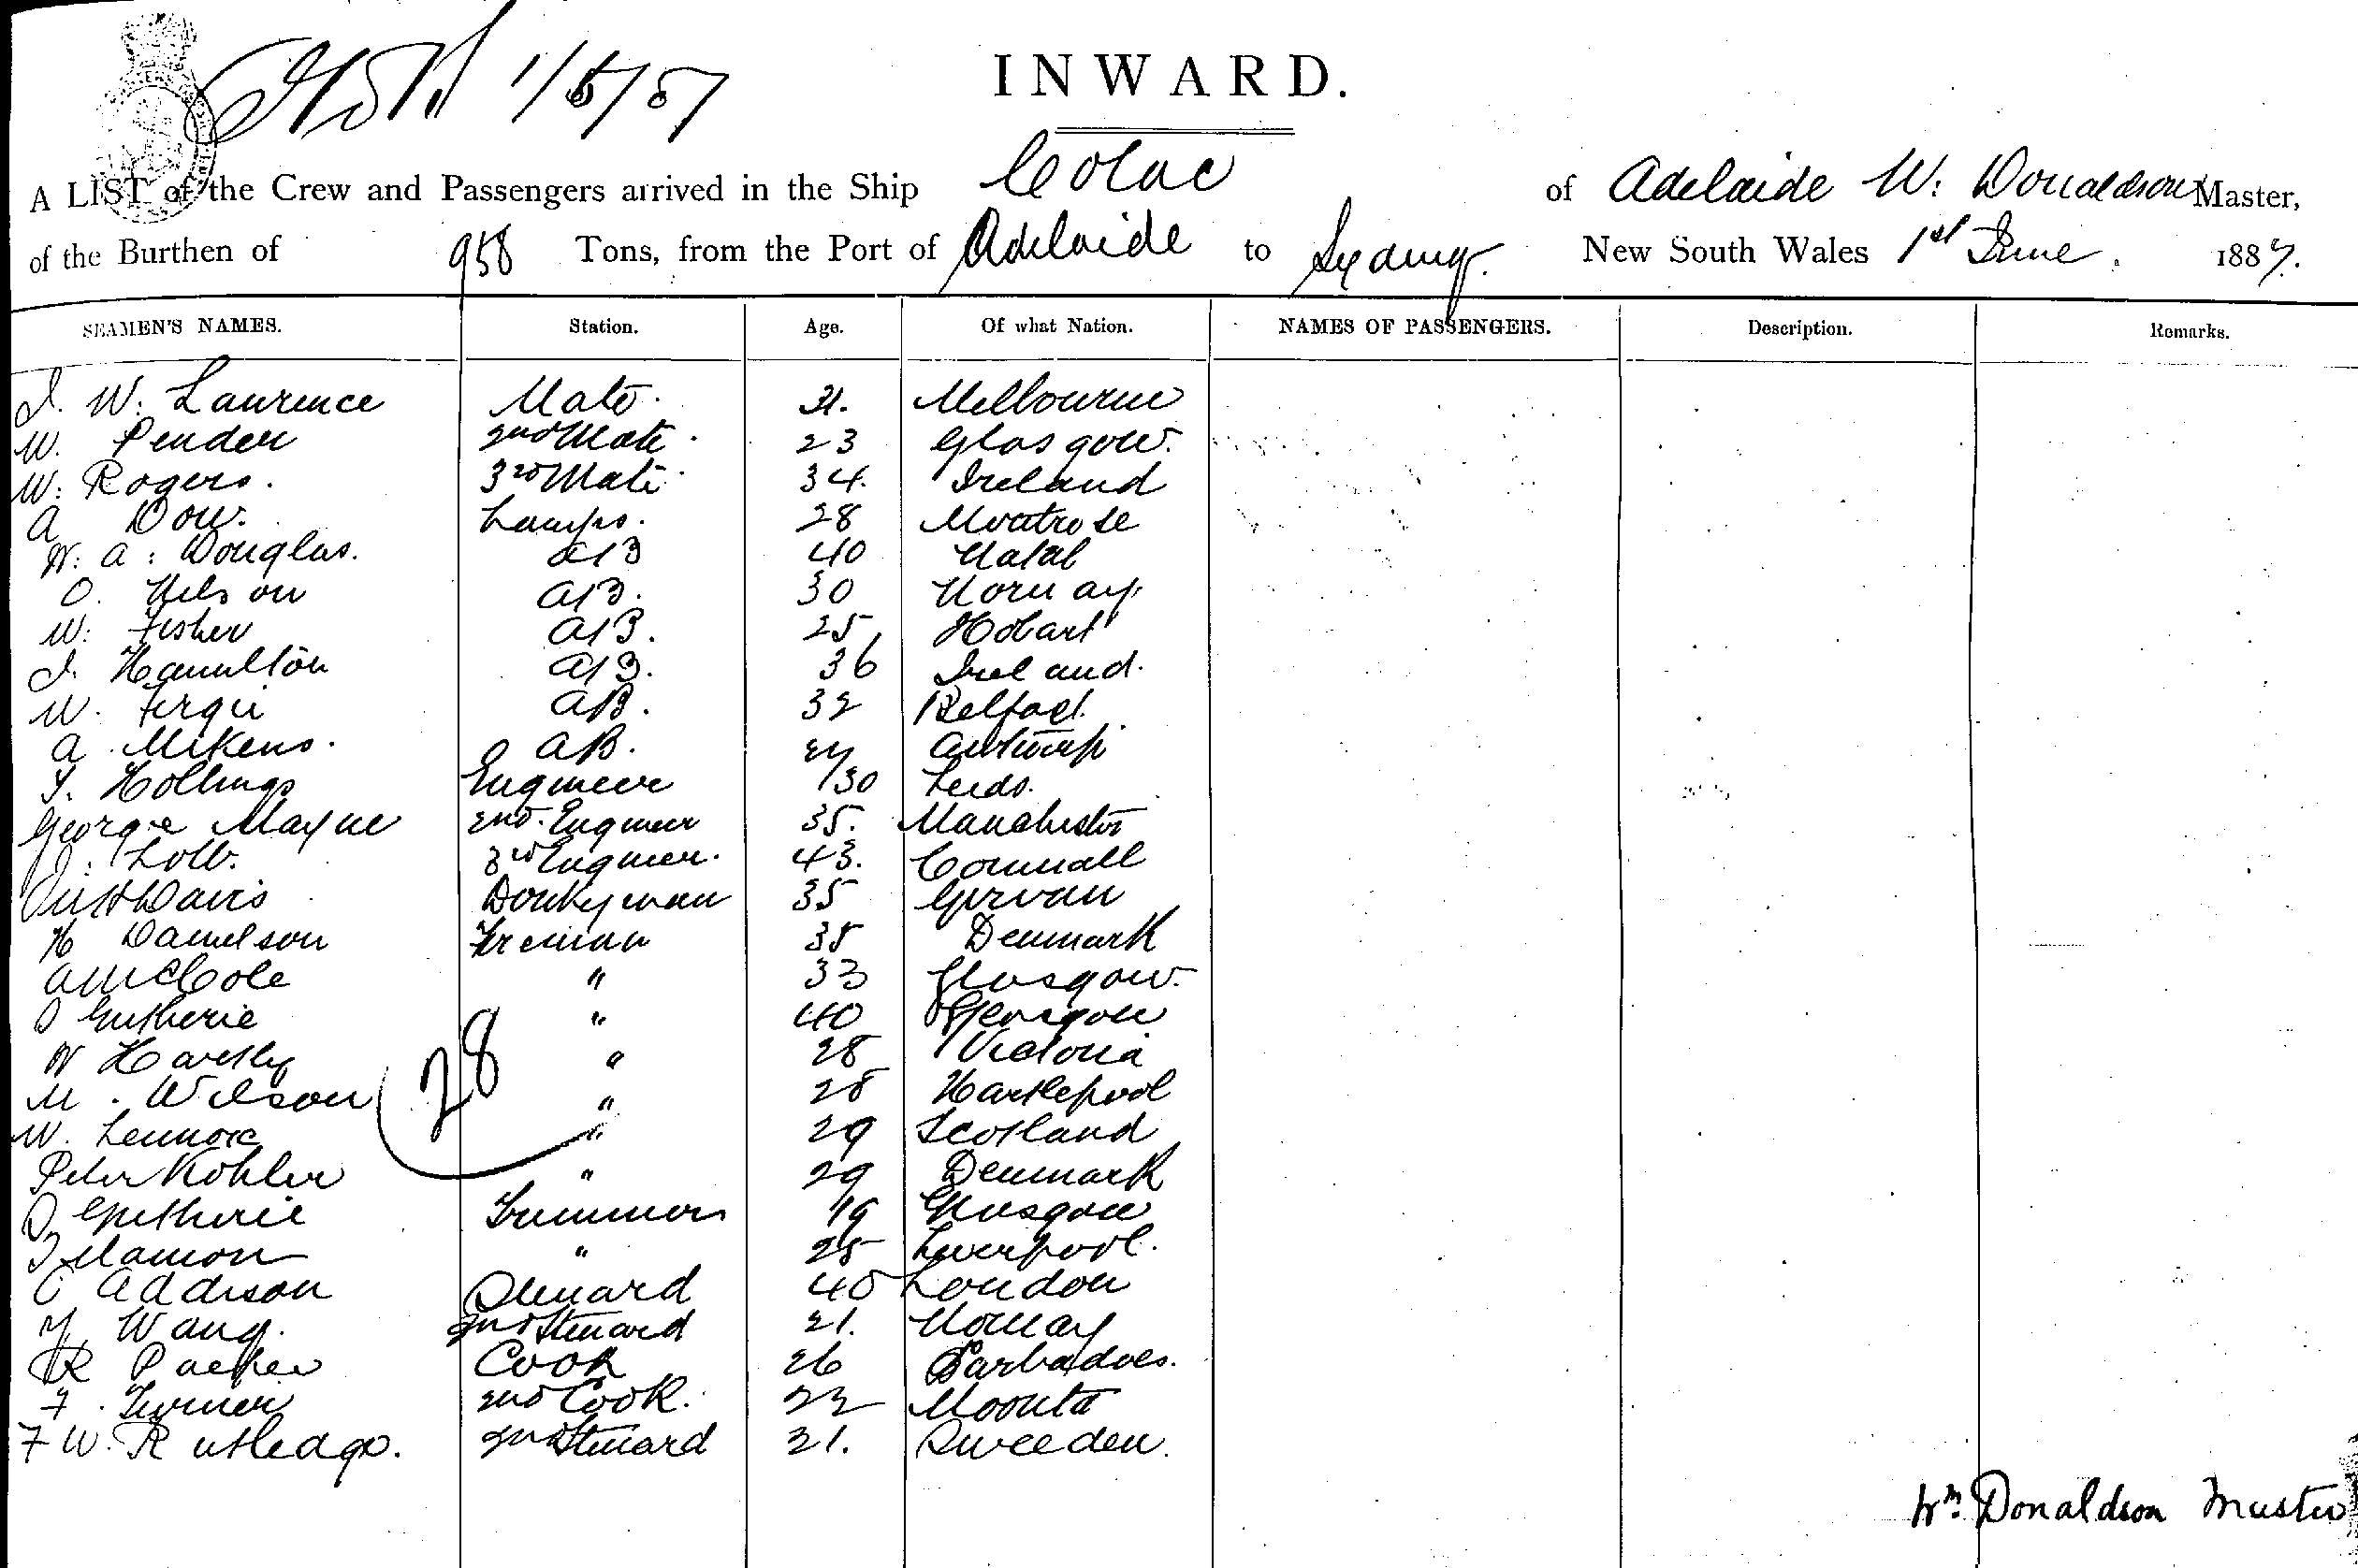 INWARD.
A LIST of the Crew and Passengers arrived in the Ship Colac of Adelaide W. Donaldson Master,
of the Burthen of 958 Tons, from the Port of Adelaide to Sydney. New South Wales 1st June. 1887.
SEAMEN'S NAMES. Station. Age. Of what Nation. NAMES OF PASSENGERS. Description. Remarks.
J. W. Lawrence Mate. 31. Melbourne
W. Pender 2nd Mate. 23 Glasgow.
W. Rogers. 3rd Mate. 34. Ireland
A Dow. Lamps. 28 Montrose
W. A. Douglas. AB 40 Natal
O. Nelson AB. 30 Norway.
W. Fisher AB. 25 Hobart
J. Hamilton AB. 36 Ireland.
W. Fergie AB. 32 Belfast.
A. Mikens. AB. 27 Antwerp
Hollings Engineer 30 Leeds.
George Mayne 2nd Engineer 35. Manchester
3rd Engineer. 43. Cornwall
Davis Donkeyman 35 Girvan
H Danielson Fireman 35 Denmark
A McCole " 33 Glasgow.
Gutherie " 40 Glasgow
W Hartley " 28 Victoria
M. Wilson 28 " 28 Hartlepool
W. Lennox " 29 Scotland
Peter Kohler " 29 Denmark
Gutherie Trimmer 19 Glasgow
" 25 Liverpool.
C Addison Steward 40 London
Wang. 2nd Steward 21. Norway
R Packer Cook 26 Barbadoes.
F. Turner 2nd Cook. 22 Moonta
F W. Rutledge. 2nd Steward 21. Sweeden.
Wm. Donaldson Master